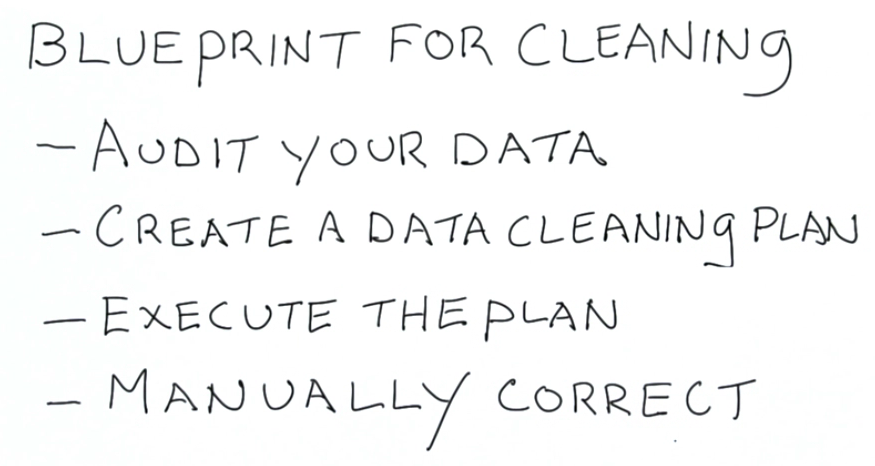 BLUEPRINT FOR CLEANING
- AUDIT YOUR DATA
- CREATE A DATA CLEANING PLAN
- EXECUTE THE PLAN
- MANUALLY CORRECT